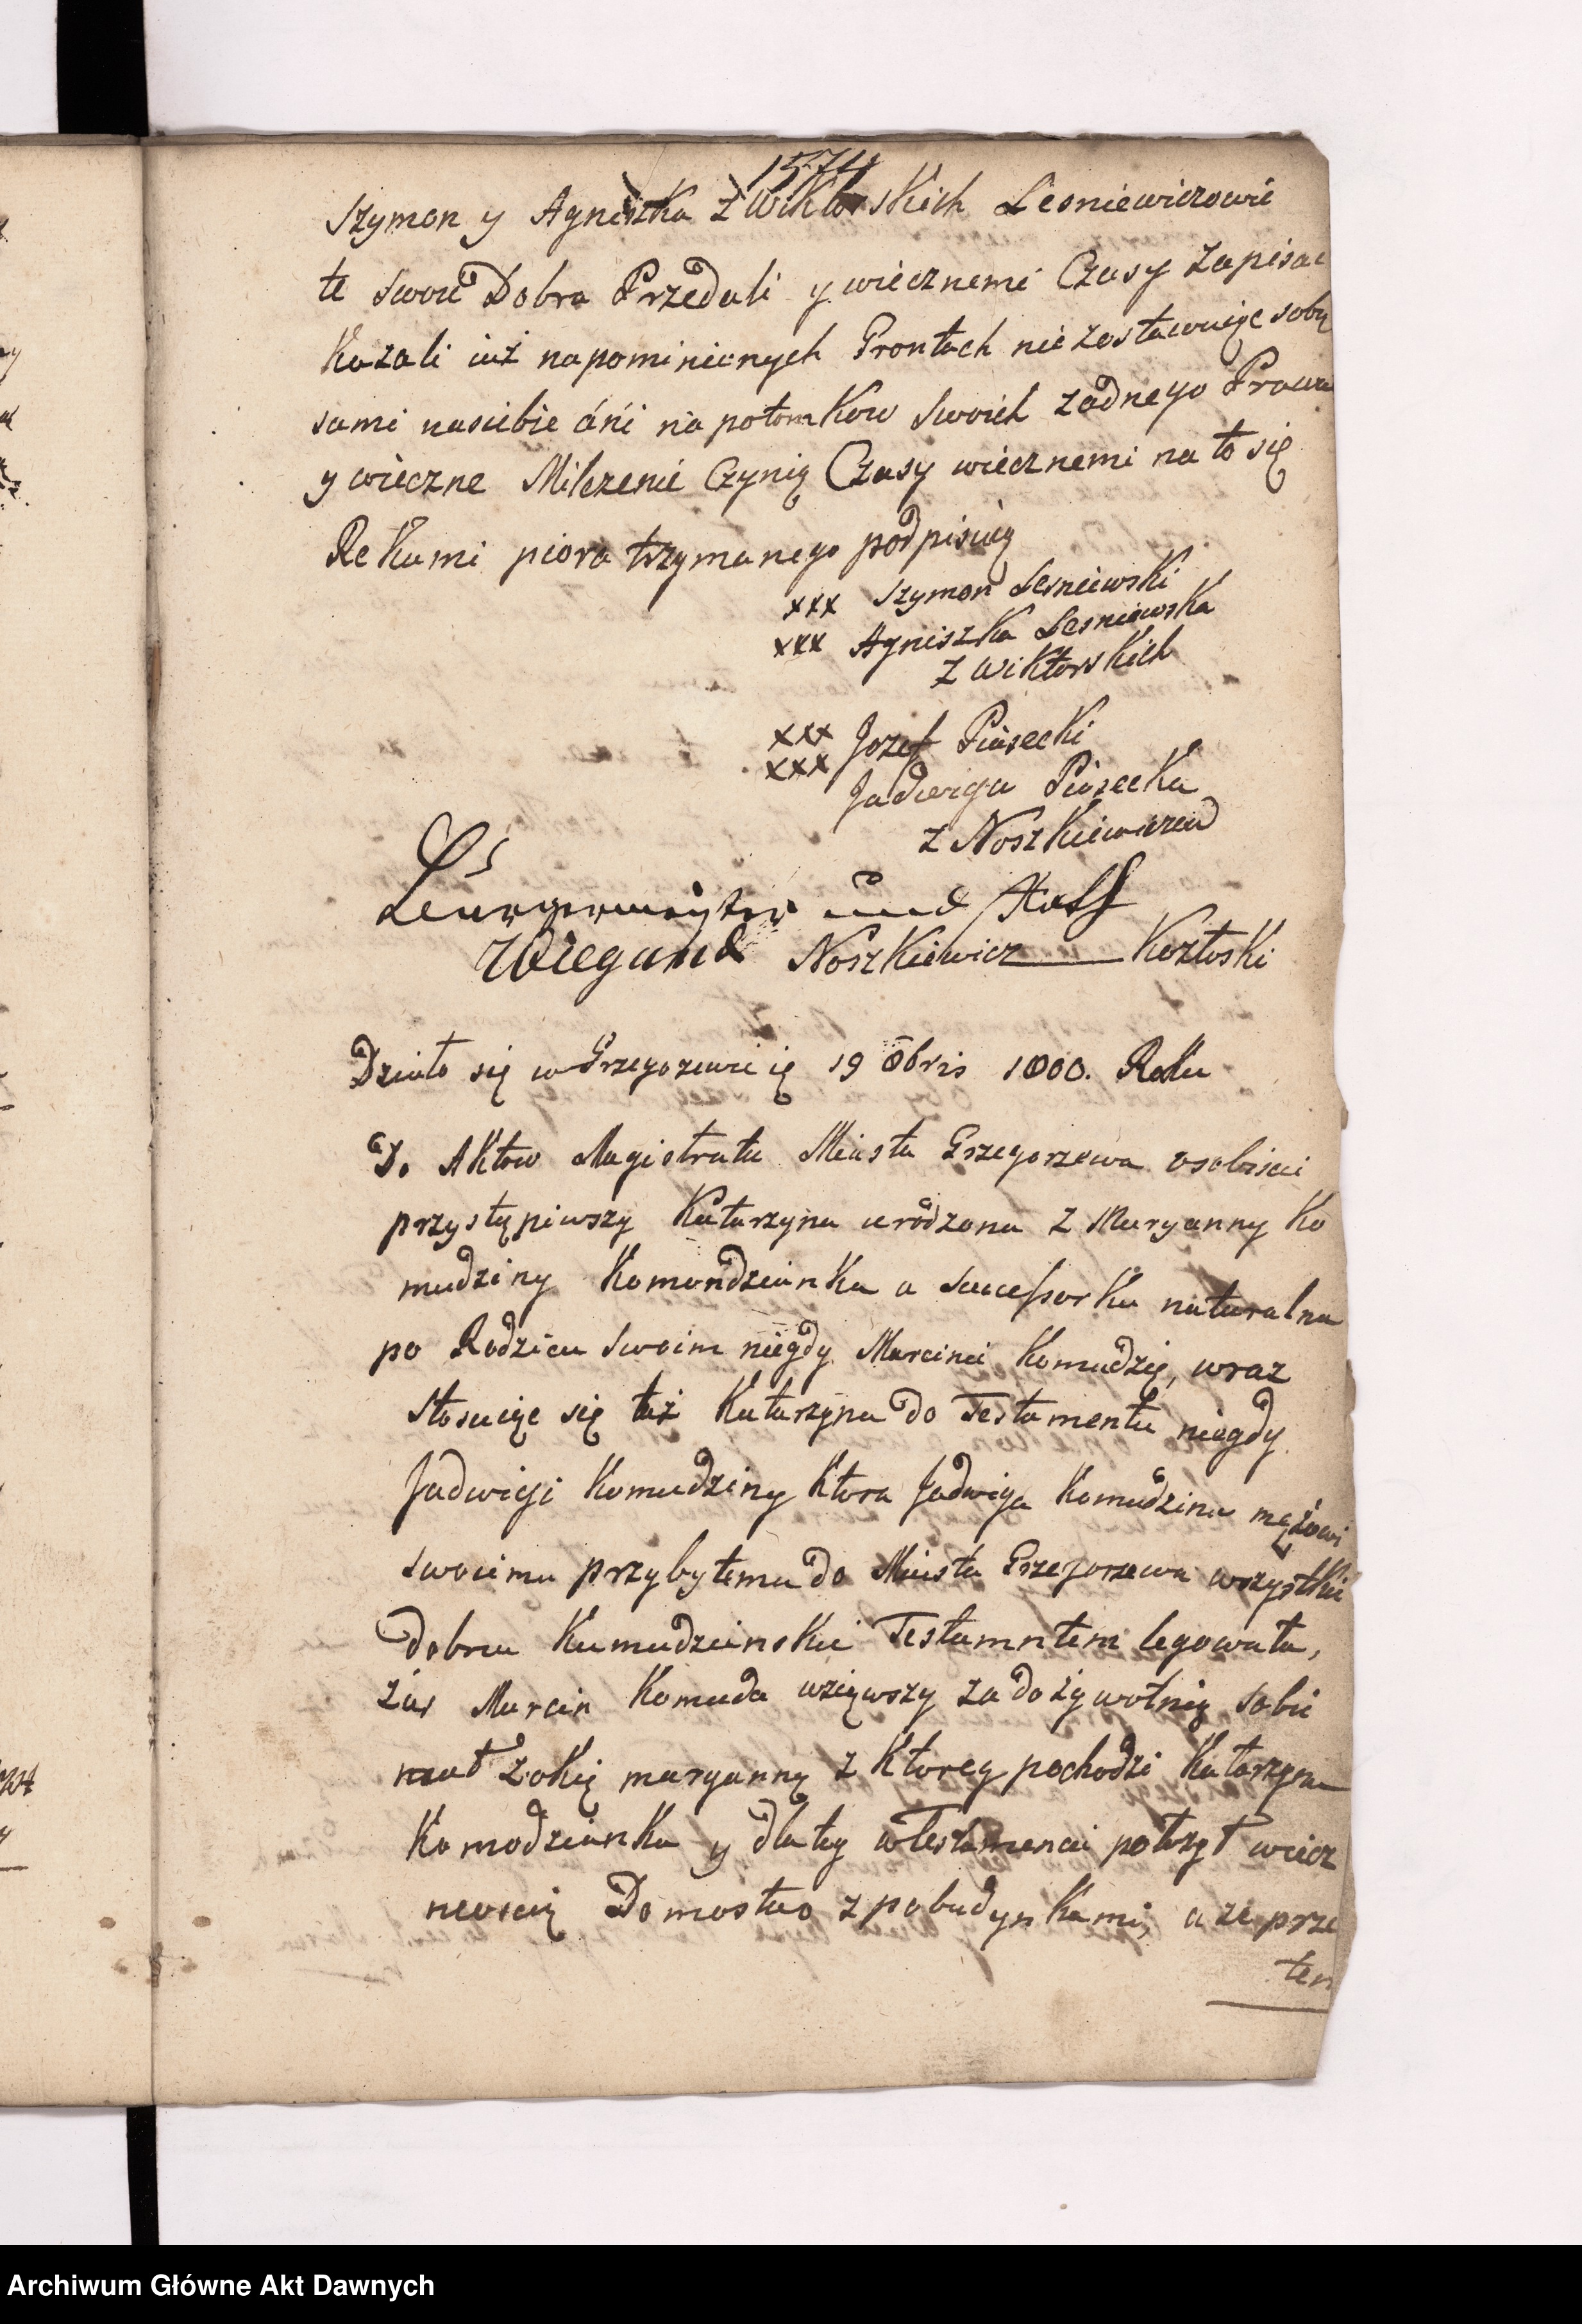 1574
Szymon y Agniszka z Wiktorskich Lesniewiczowie
te swoie Dobra Przedali y wiecznemi Czasy Zapisac
Kazali iuż napominionych Grontach nie zostawuiąc sobą
sami nasiebie áni na potomkow swoich żadnego Prawa
y wieczne Milczenie Czynią Czasy wiecznemi na to się
Rekami piora trzymanego podpisuią
xxx Szymon Lesniewski
xxx Agniszka Lesniewska
z Wiktorskich
xxx Jozef Piasecki
xxx Jadwiga Piasecka
z Noszkiewiczów
Burgermeyster und Rath
Wiegand Noszkiewicz Kozłoski
Działo się w Grzegorzewie ię 19 8bris 1800. Roku
Do Aktow Magistratu Miasta Grzegorzewa osobiscie
przystąpiwszy Katarzyna urodzona z Maryanny Ko
mudziny Komondzianka a Successorka naturalna
po Rodzicu swoim niegdy Marcinie Komudzię, wraz
stosuiąc się taż Katarzyna do Testamentu niegdy
Jadwigi Komudziny ktora Jadwiga Komudzina mężowi
swoiemu przybytemu do Miasta Grzegorzewa wszystkie
dobra Kumudzienskie Testamntem legowała,
zas Marcin Komuda wziąwszy za dożywotnią sobie
miał Zokię maryannę z ktorey pochodzi Katarzyna
Komodzianka y dla tey w Testamencie połozył wiecz
neoscią Domostwo z pobudynkami, a ze prze
ten